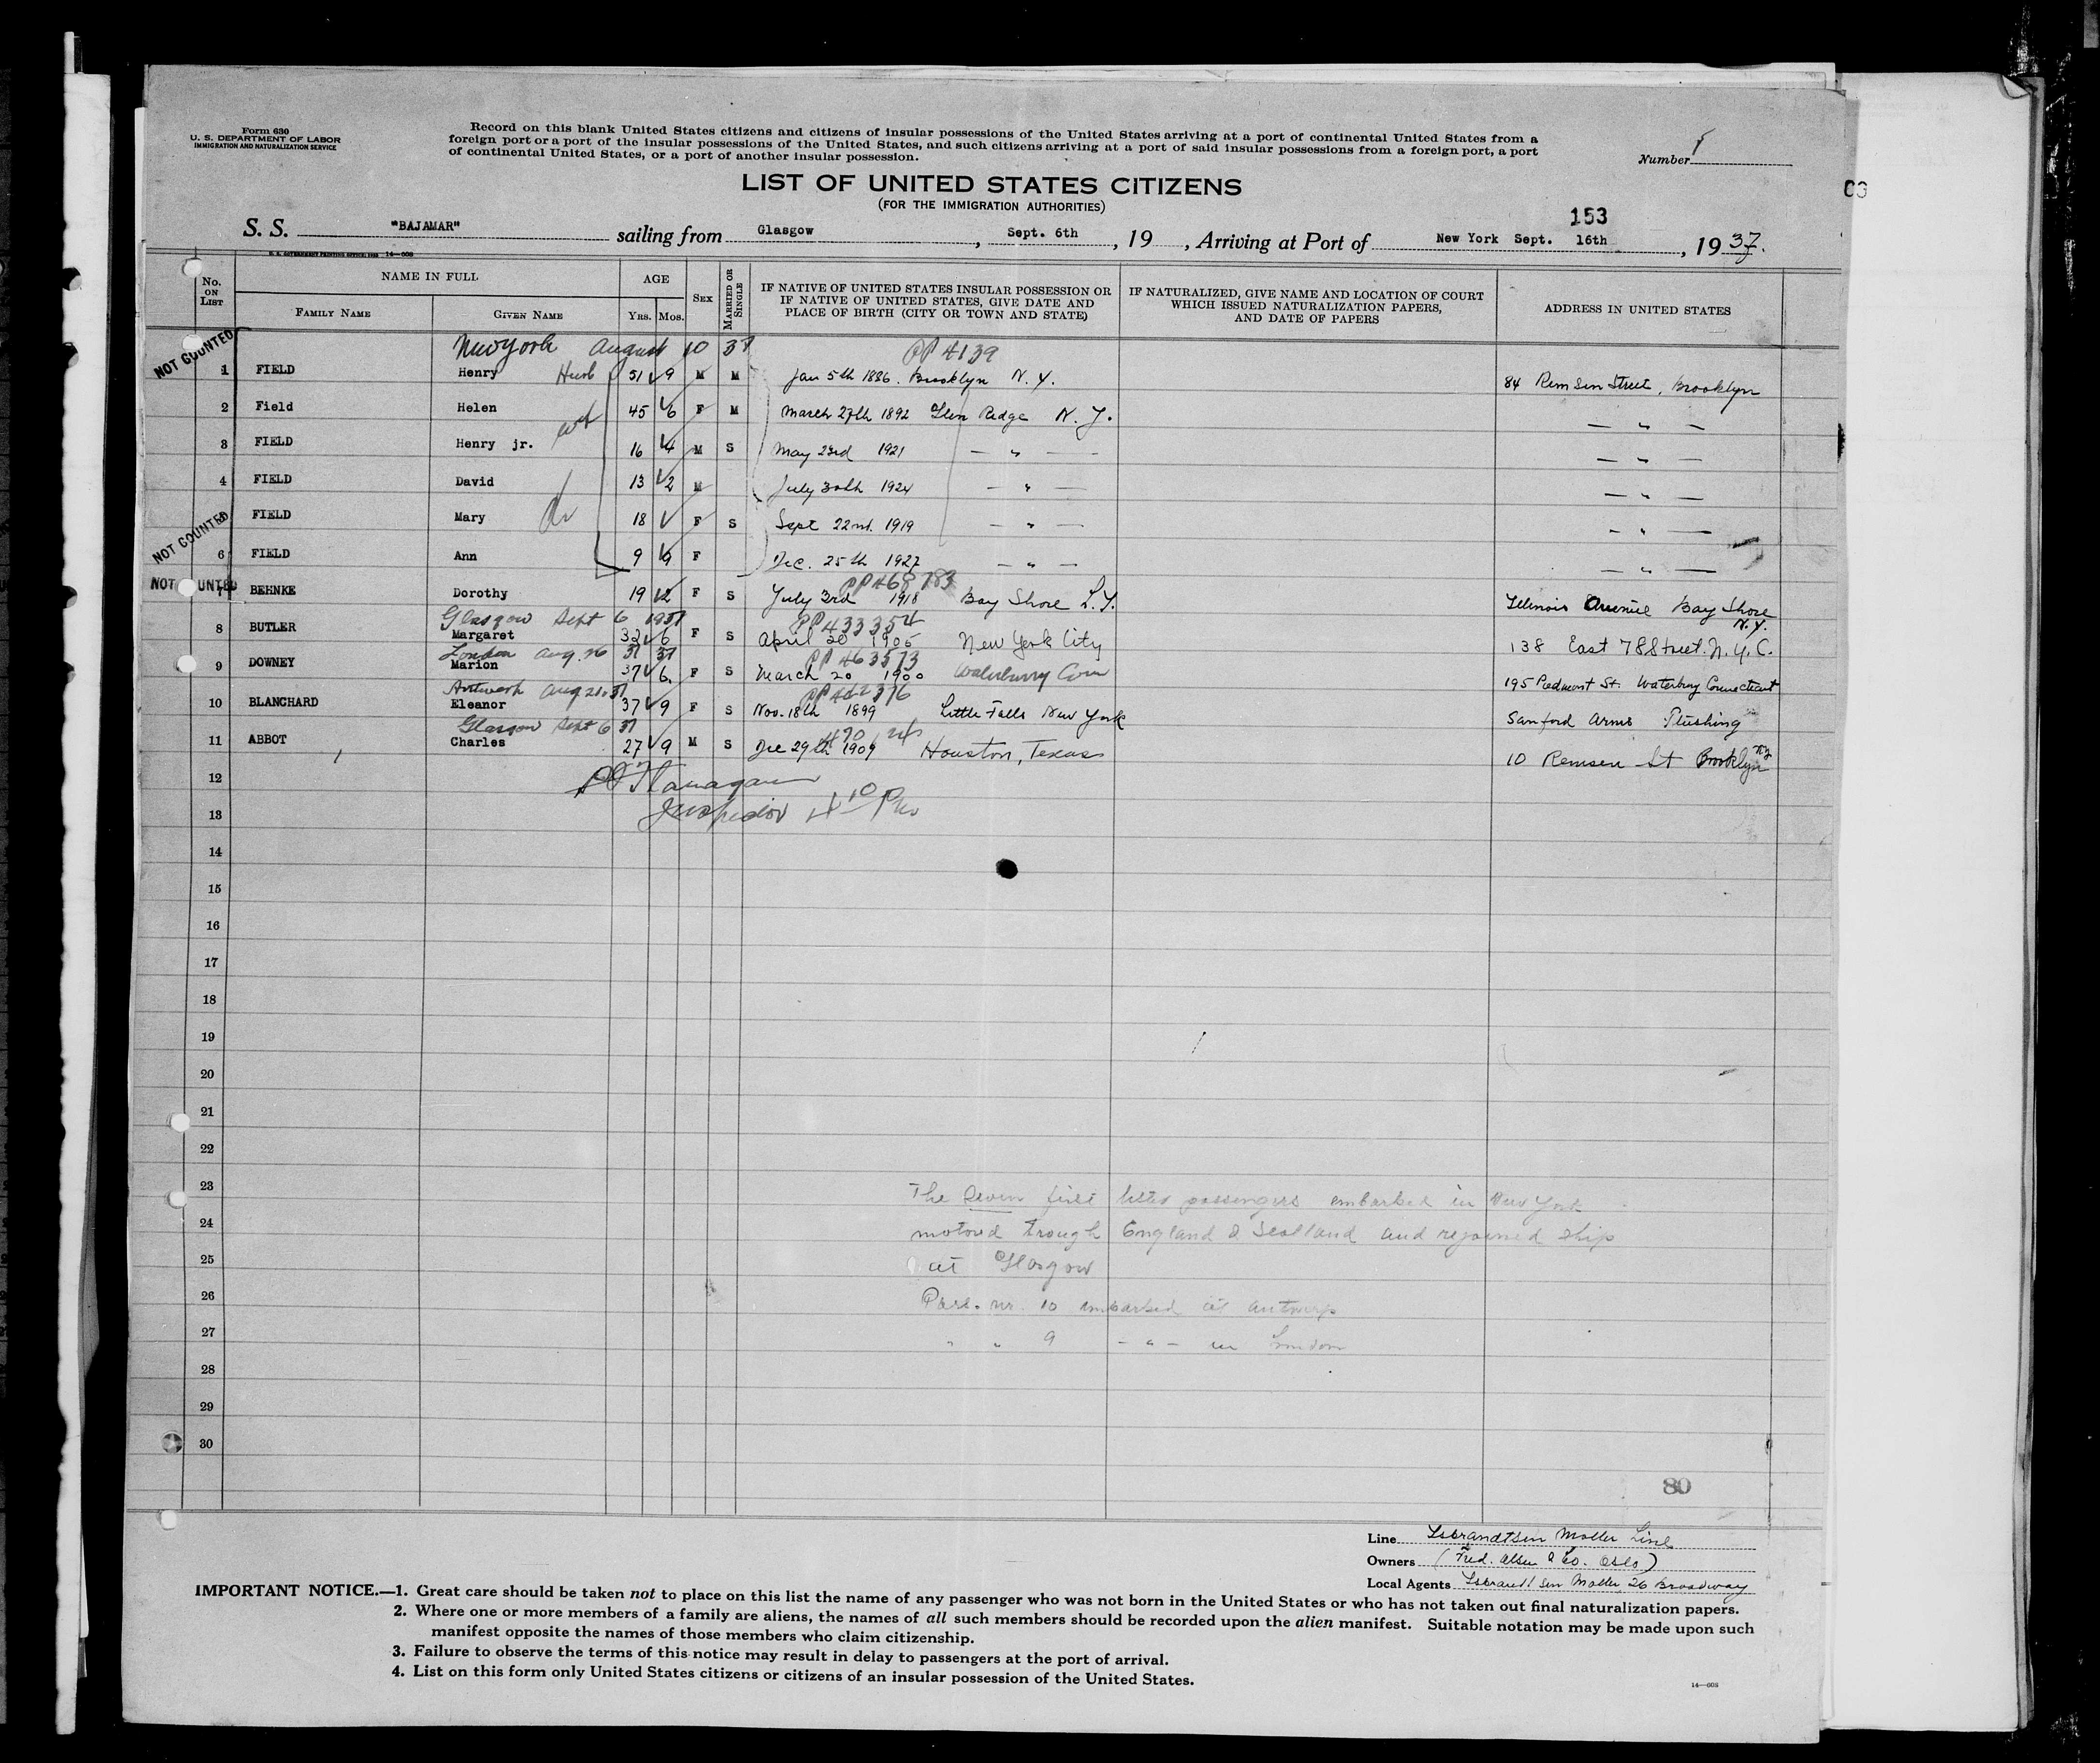 Form 630
U. S. DEPARTMENT OF LABOR
IMMIGRATION AND NATURALIZATION SERVICE
Record on this blank United States citizens and citizens of insular possessions of the United States arriving at a port of continental United States from a
foreign port or a port of the insular possessions of the United States, and such citizens arriving at a port of said insular possessions from a foreign port, a port
of continental United States, or a port of another insular possession.
Number
LIST OF UNITED STATES CITIZENS
(FOR THE IMMIGRATION AUTHORITIES)
153
S. S. "BAJAMAR" sailing from Glasgow, Sept. 6th, 19 , Arriving at Port of New York Sept. 16th, 1937.
U. S. GOVERNMENT PRINTING OFFICE: 14—608
No. ON LIST
NAME IN FULL
FAMILY NAME
GIVEN NAME
AGE
YRS. MOS.
SEX
MARRIED OR SINGLE
IF NATIVE OF UNITED STATES INSULAR POSSESSION OR
IF NATIVE OF UNITED STATES, GIVE DATE AND
PLACE OF BIRTH (CITY OR TOWN AND STATE)
IF NATURALIZED, GIVE NAME AND LOCATION OF COURT
WHICH ISSUED NATURALIZATION PAPERS,
AND DATE OF PAPERS
ADDRESS IN UNITED STATES
New York August 10 37 PP 4139
NOT COUNTED
1 FIELD Henry Husb 51 9 M M Jan 5th 1886. Brooklyn N. Y. 84 Remsen Street, Brooklyn
2 Field Helen 45 6 F M March 27th 1892 Glen Ridge N. J. — " —
3 FIELD Henry jr. 16 4 M S May 23rd 1921 — " — — " —
4 FIELD David 13 2 M July 30th 1924 — " — — " —
NOT COUNTED
5 FIELD Mary 18 F S Sept 22nd. 1919 — " — — " —
6 FIELD Ann 9 9 F Dec. 25th 1927 — " — — " —
PP 468783
NOT COUNTED
7 BEHNKE Dorothy 19 2 F S July 3rd 1918 Bay Shore L.I. Illinois Avenue Bay Shore N.Y.
Glasgow Sept 6 1937 PP 433354
8 BUTLER Margaret 32 6 F S April 20 1905 New York City 138 East 78 Street. N. Y. C.
London Aug. 26 37 37 PP 463573
9 DOWNEY Marion 37 6. F S March 20 1900 Waterbury Conn 195 Piedmont St. Waterbury Connecticut
Antwerp Aug 21. 37 PP 462376
10 BLANCHARD Eleanor 37 9 F S Nov. 18th 1899 Little Falls New York Sanford Arms Flushing
Glasgow Sept 6 37
11 ABBOT Charles 27 9 M S Dec 29th 1909 Houston, Texas 10 Remsen St Brooklyn N.Y
12
Inspector 4 10 Pm
13
14
15
16
17
18
19
20
21
22
23
The seven first listed passengers embarked in New York
24
motored trough England & Scotland and rejoined ship
25
at Glasgow
26
Pass. nr. 10 embarked at Antwerp
27
" " 9 — " — in London
28
29
30
80
Line Isbrandtsen Moller Line
Owners (Fred. Olsen & Co. Oslo)
Local Agents Isbrandtsen Moller, 26 Broadway
IMPORTANT NOTICE.—1. Great care should be taken not to place on this list the name of any passenger who was not born in the United States or who has not taken out final naturalization papers.
2. Where one or more members of a family are aliens, the names of all such members should be recorded upon the alien manifest. Suitable notation may be made upon such
manifest opposite the names of those members who claim citizenship.
3. Failure to observe the terms of this notice may result in delay to passengers at the port of arrival.
4. List on this form only United States citizens or citizens of an insular possession of the United States.
14—608